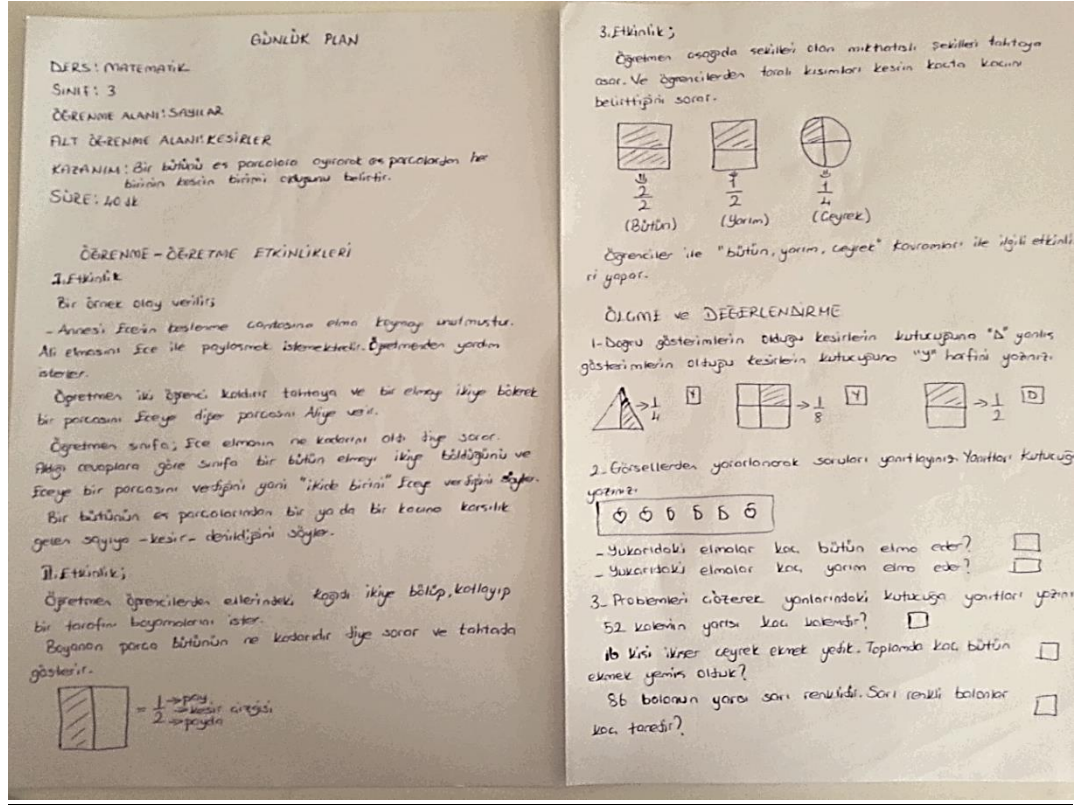 GÜNLÜK PLAN
DERS: MATEMATİK
SINIF: 3
ÖĞRENME ALANI: SAYILAR
ALT ÖĞRENME ALANI: KESİRLER
KAZANIM: Bir bütünü eş parçalara ayırarak eş parçalardan her
birinin kesrin birimi olduğunu belirtir.
SÜRE: 40 dk
ÖĞRENME-ÖĞRETME ETKİNLİKLERİ
I.Etkinlik
Bir örnek olay verilir;
- Annesi Ece'nin beslenme çantasına elma koymayı unutmuştur.
Ali elmasını Ece ile paylaşmak istemektedir. Öğretmenden yardım
isterler.
Öğretmen iki öğrenci kaldırır tahtaya ve bir elmayı ikiye bölerek
bir parçasını Eceye diğer parçasını Aliye verir.
Öğretmen sınıfa; Ece elmanın ne kadarını aldı diye sorar.
Aldığı cevaplara göre sınıfa bir bütün elmayı ikiye böldüğünü ve
Eceye bir parçasını verdiğini yani "ikide birini" Eceye verdiğini söyler.
Bir bütünün eş parçalarından bir ya da bir kaçına karşılık
gelen sayıya -kesir- denildiğini söyler.
II.Etkinlik;
Öğretmen öğrencilerden ellerindeki kağıdı ikiye bölüp, katlayıp
bir tarafını boyamalarını ister.
Boyanan parça bütünün ne kadarıdır diye sorar ve tahtada
gösterir.
= 1/2 →pay →kesir çizgisi →payda
3.Etkinlik;
Öğretmen aşağıda şekilleri olan mıknatıslı şekilleri tahtaya
asar. Ve öğrencilerden taralı kısımları kesrin kaçta kaçını
belirttiğini sorar.
2/2 1/2 1/4
(Bütün) (Yarım) (Çeyrek)
Öğrenciler ile "bütün, yarım, çeyrek" kavramları ile ilgili etkinli
ri yapar.
ÖLÇME ve DEĞERLENDİRME
1-Doğru gösterimlerin olduğu kesirlerin kutucuğuna "D" yanlış
gösterimlerin olduğu kesirlerin kutucuğuna "Y" harfini yazınız.
→1/4 Y →1/8 Y →1/2 D
2-Görsellerden yararlanarak soruları yanıtlayınız. Yanıtları kutucuğ
yazınız.
- Yukarıdaki elmalar kaç bütün elma eder?
- Yukarıdaki elmalar kaç yarım elma eder?
3-Problemleri çözerek yanlarındaki kutucuğa yanıtları yazını
52 kalemin yarısı kaç kalemdir?
16 kişi ikişer çeyrek ekmek yedik. Toplamda kaç bütün
ekmek yemiş olduk?
86 balonun yarısı sarı renklidir. Sarı renkli balonlar
kaç tanedir?